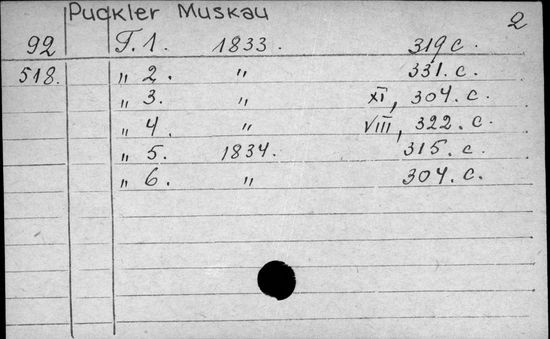 Puckler Muskau
2
92 T. 1. 1833. 319 c.
518. „ 2. „ 331. c.
„ 3. „ XI, 304. c.
„ 4. „ VIII, 322. c.
„ 5. 1834. 315. c.
„ 6. „ 304. c.